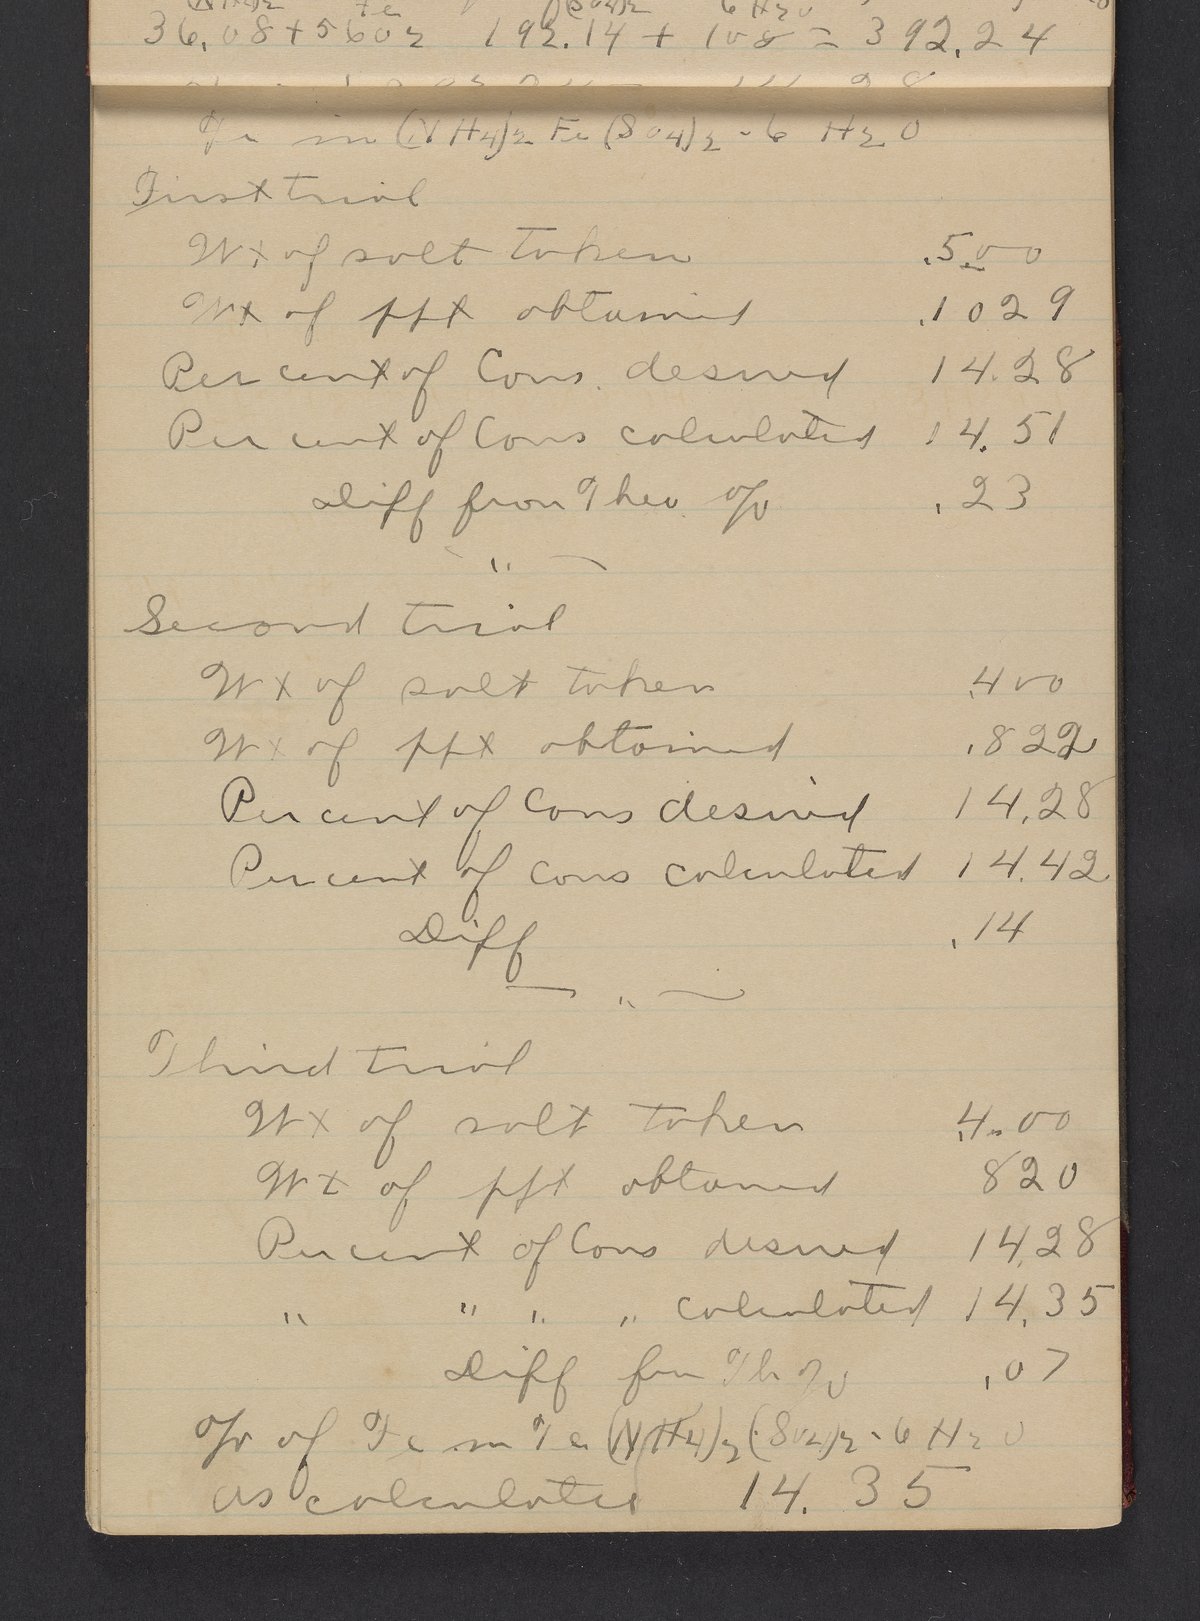 (NH4)2 Fe (SO4)2 6 H2O
36.08+56.02 192.14 + 108 = 392.24
Fe in (NH4)2 Fe (SO4)2 - 6 H2O
First trial
Wt of salt taken .500
Wt of ppt obtained .1029
Per cent of Cons. desired 14.28
Per cent of Cons calculated 14.51
Diff from Theo. % .23
"
Second trial
Wt of salt taken .400
Wt of ppt obtained .822
Per cent of Cons desired 14.28
Per cent of cons calculated 14.42
Diff .14
— " —
Third trial
Wt of salt taken .400
Wt of ppt obtained 820
Per cent of Cons desired 14.28
" " " " calculated 14.35
Diff from Th % .07
% of Fe in Fe (NH4)2 (SO4)2 - 6 H2O
as calculated 14.35